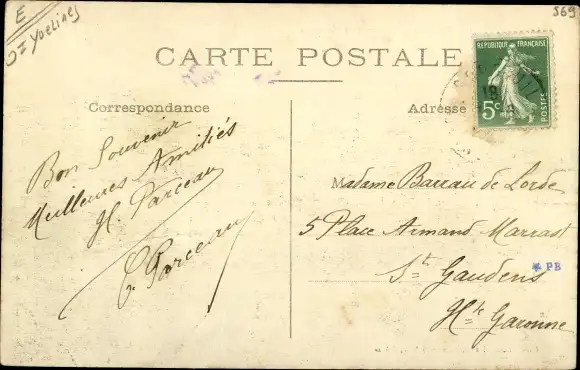 E
Yvelines
569
CARTE POSTALE
REPUBLIQUE FRANÇAISE
5c
POSTES
Correspondance
Adresse
Bon Souvenir
Meilleures Amitiés
H. Parceau
G. Parceau
Madame Barrau de Lorde
5 Place Armand Marrast
St Gaudens
PB
Hte Garonne